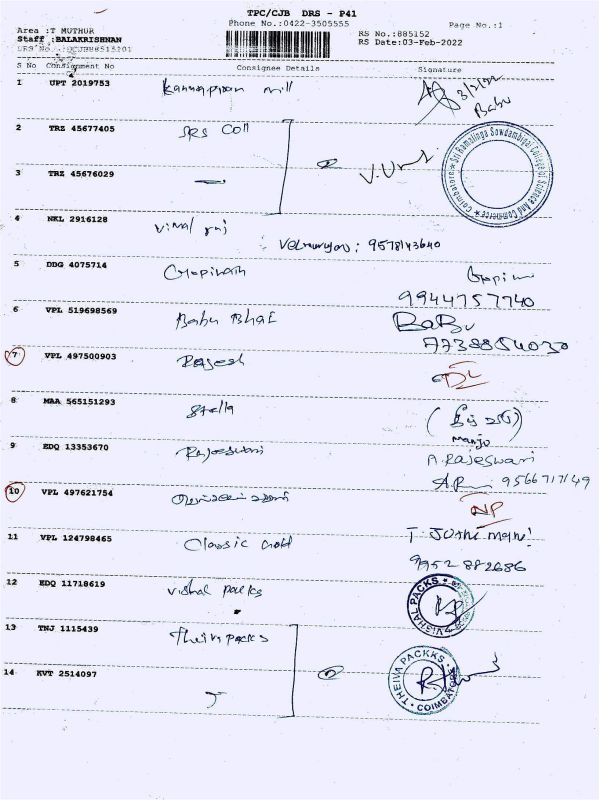 TPC/CJB DRS - P41
Phone No.:0422-3505555
Page No.:1
Area :T MUTHUR
Staff :BALAKRISHNAN
RS No.:885152
RS Date:03-Feb-2022
S No Consignment No Consignee Details Signature
1 UPT 2019753 Kannapiran mill 3/2/22
Babu
2 TRZ 45677405 SRS Coll
3 TRZ 45676029
Sri Ramalinga Sowdambigai College of Science And Commerce Coimbatore
4 NKL 2916128 Vimal raj
Velmurugan: 9578143640
5 DDG 4075714 Gopinath Gopin
9944757740
6 VPL 519698569 Babu Bhai BaBu
7738854030
7 VPL 497500903 Rajesh DL
8 MAA 565151293 Stella
manju
9 EDQ 13353670 Rajeswari A.Rajeswari
9566717149
10 VPL 497621754 NP
11 VPL 124798465 Classic Knit T. Jothi Mani
9952882686
12 EDQ 11718619 Vishal packs
VISHAL PACKS
13 TNJ 1115439 Theivapacks
14 KVT 2514097
THEIVA PACKKS COIMBATORE